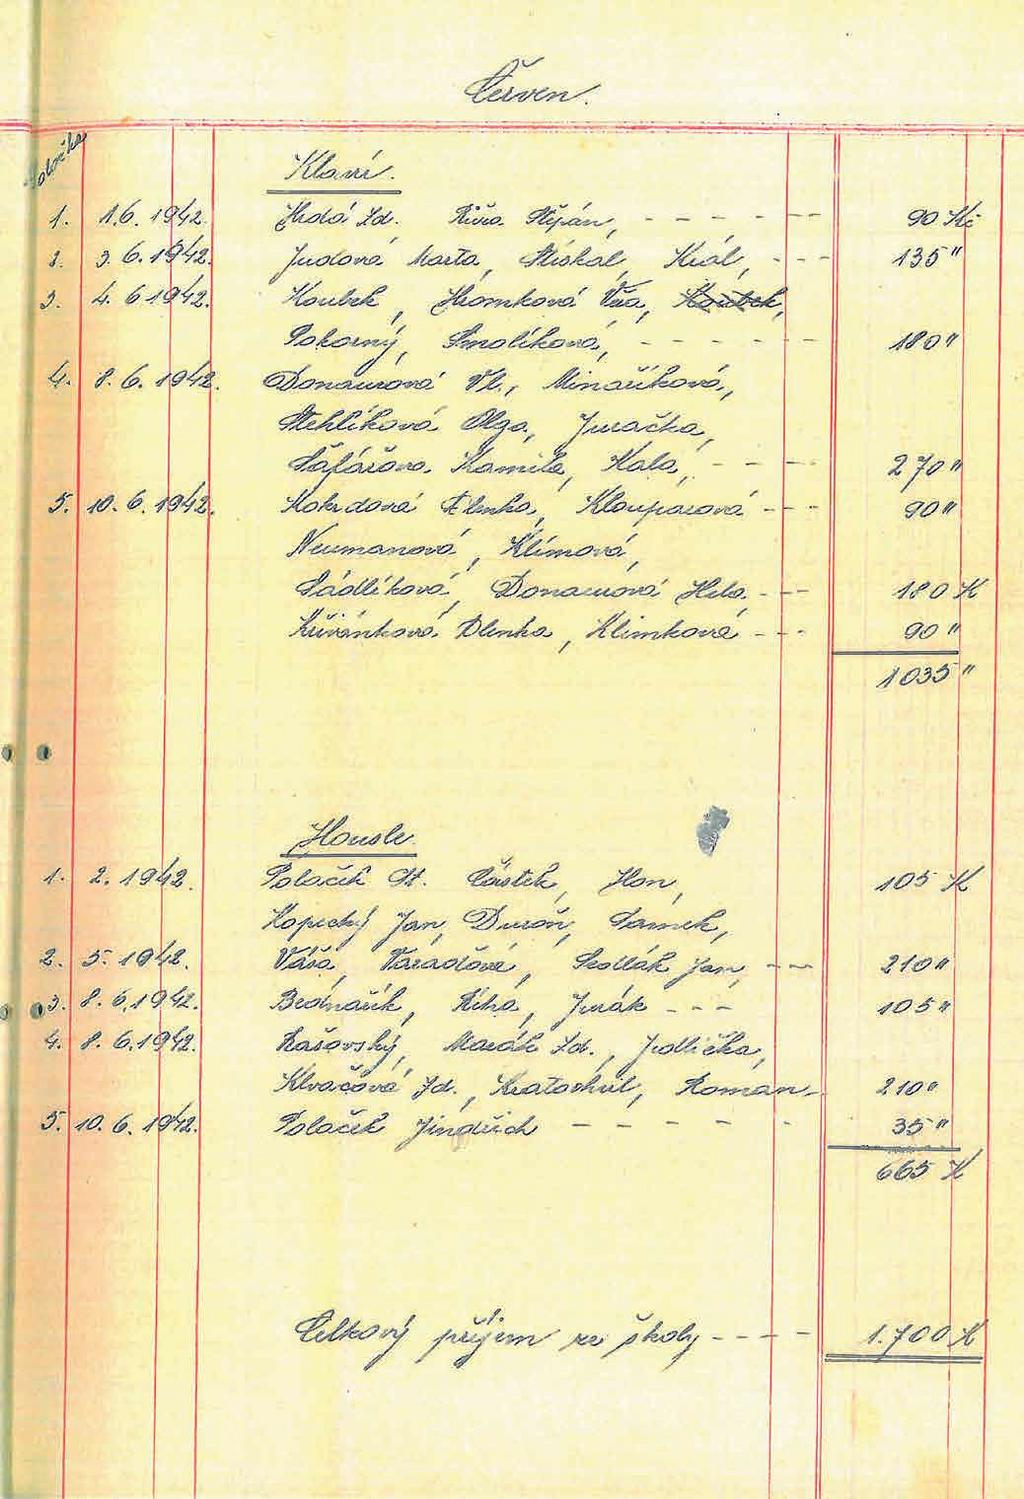 Červen.
Položka
Klavír.
1. 1.6.1942. Hrdá Zd. Říha Štěpán, - - - - - 90 Kč
2. 3.6.1942. Judová Marta, Stískal, Král, - - - 135 "
3. 4.6 1942. Koubek, Hromková Věra, Koubek,
Pokorný, Smolíková, - - - - - - 180 "
4. 8.6.1942. Donaurová Vl., Minaříková,
Stehlíková Olga, Juračka,
Šafářova Kamila, Kala, - - - - 270 "
5. 10.6.1942. Kokrdová Elenka, Klouparová - - - 90 "
Neumanová, Klímová,
Sádlíková, Donaurová Hela - - - 180 K
Křivánková Blenka, Klimková - - - 90 "
1035 "
Housle.
1. 2.1942. Polaček St. Částek, Hon, 105 K
Kopecký Jan, Duroň, Samek,
2. 5.1942. Váša, Varadové, Sedlák Jan, - - 210 "
3. 8.6.1942. Bednařík, Říha, Jurák - - - 105 "
4. 8.6.1942. Rašovský, Marák Zd., Jedlička,
Klvačová Zd., Kratochvíl, Roman - 210 "
5. 10.6.1942. Polaček Jindřich - - - - - 35 "
665 K
Celkový příjem ze školy - - - - 1.700 K